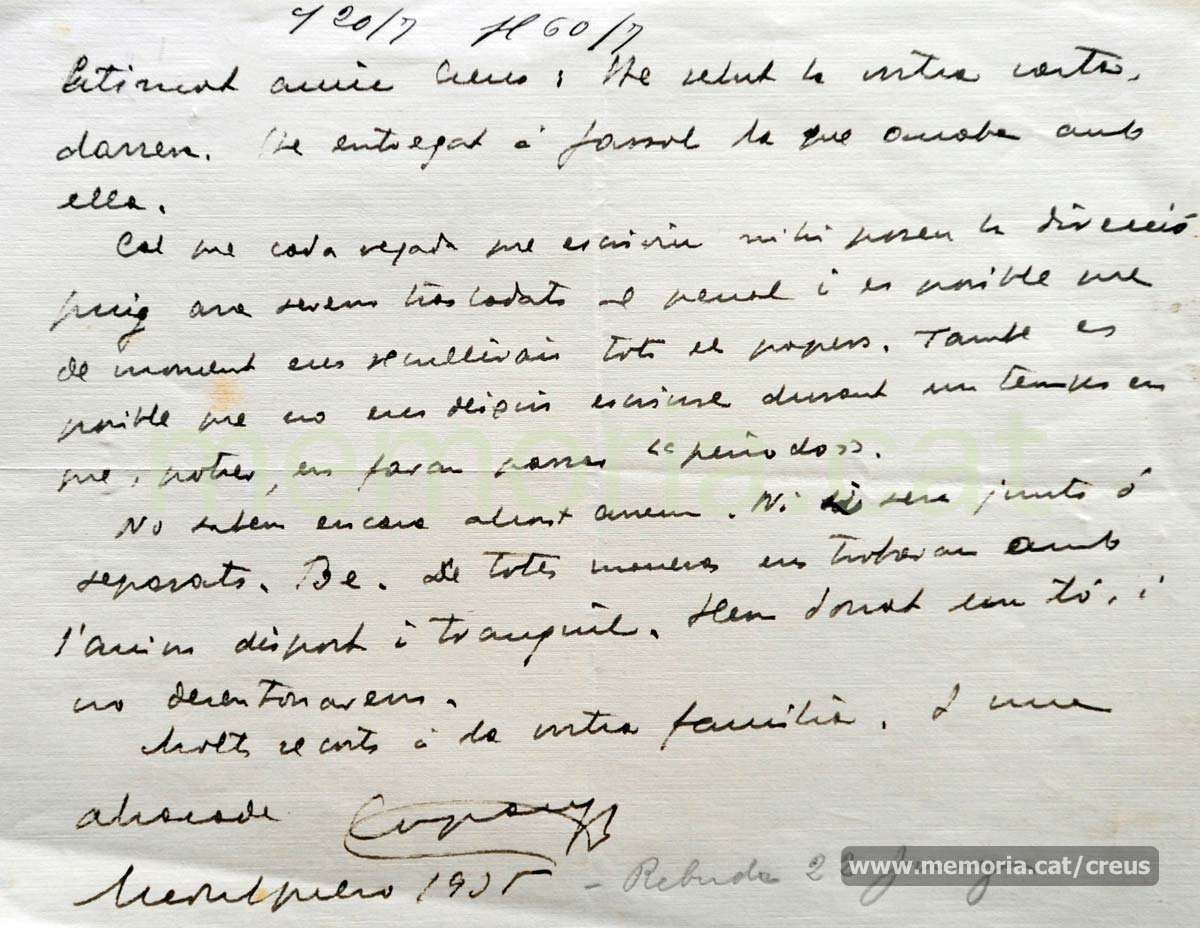 20/7 H 60/7
Estimat amic Creus: He rebut la vostra carta,
darrera. He entregat à Fassol la que anaba amb
ella.
Cal que cada vegada que escriviu m'hi poseu la direcció
puig ara serem trasladats al penal i es posible que
de moment ens recullirán tots els papers. També es
posible que no ens deixin escriure durant un temps en
que, potser, ens faran passar periodos.
No sabem encara ahont anem. Ni si sera junts ó
separats. Be. De totes maneras ens trobaran amb
l'anim disport i tranquil. Hem donat un tó, i
no desentonarem.
Molts records à la vostra familia. I una
abraçada Companys
Madrid 1935 - Rebuda 22 Juny
memoria.cat
www.memoria.cat/creus